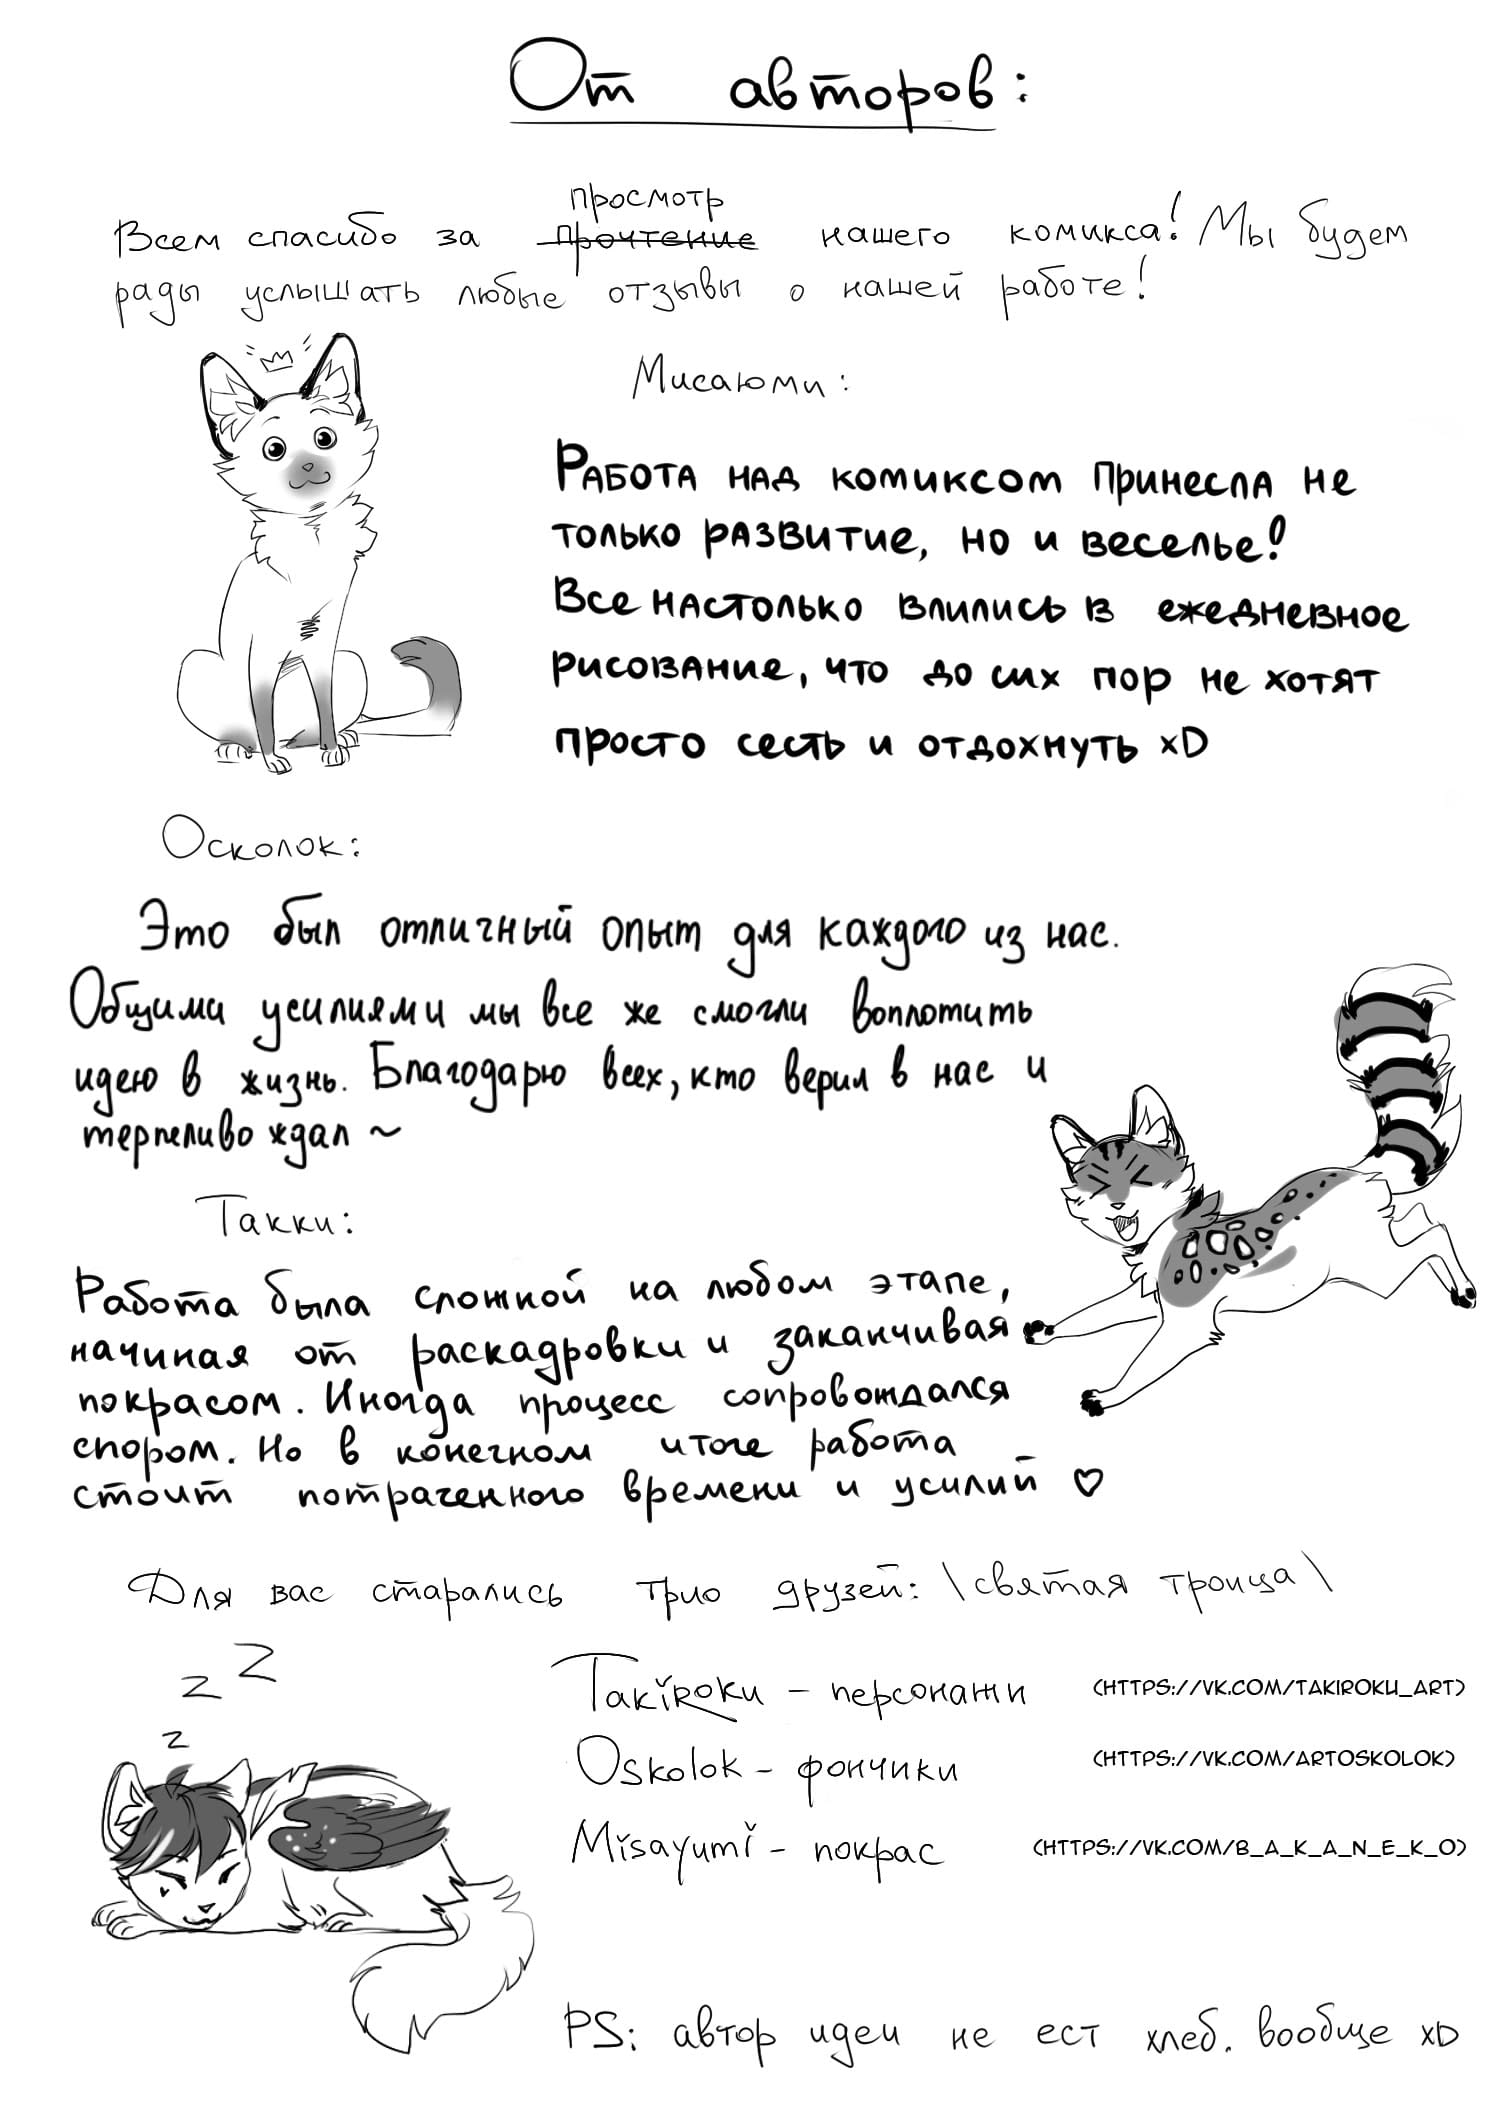 От авторов:
просмотр
Всем спасибо за прочтение нашего комикса! Мы будем
рады услышать любые отзывы о нашей работе!
Мисаюми:
Работа над комиксом принесла не
только развитие, но и веселье!
Все настолько влились в ежедневное
рисование, что до сих пор не хотят
просто сесть и отдохнуть xD
Осколок:
Это был отличный опыт для каждого из нас.
Общими усилиями мы все же смогли воплотить
идею в жизнь. Благодарю всех, кто верил в нас и
терпеливо ждал ~
Такки:
Работа была сложной на любом этапе,
начиная от раскадровки и заканчивая
покрасом. Иногда процесс сопровождался
спором. Но в конечном итоге работа
стоит потраченного времени и усилий ♡
Для вас старались трио друзей: \святая троица\
z z
z
Takiroku - персонажи (HTTPS://VK.COM/TAKIROKU_ART)
Oskolok - фончики (HTTPS://VK.COM/ARTOSKOLOK)
Misayumi - покрас (HTTPS://VK.COM/B_A_K_A_N_E_K_O)
PS: автор идеи не ест хлеб. вообще xD